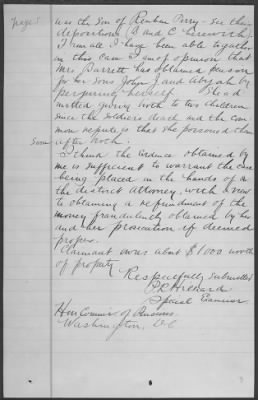 page 5
was the Son of Reuben Perry - See their
depositions (B and C herewith).
From all I have been able to gather
in this case I am of opinion that
Mrs. Barrett has obtained pension
for her sons John J and Abijah by
perjuring herself. She ad
mitted giving birth to two children
since the soldiers death and the com
mon repute is that she poisoned them
Soon after birth.
I think the evidence obtained by
me is sufficient to warrant the case
being placed in the hands of a
the district Attorney, with a view
to obtaining a refundment of the
money fraudulently obtained by her
and her prosecution if deemed
proper.
Claimant owns about $1000 worth
of property
Respectfully submitted
Special Examiner
Hon Commr of Pensions
Washington, D.C.